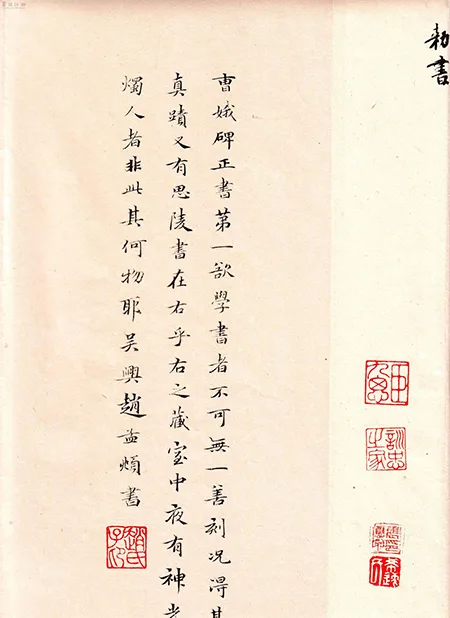 勑書
曹娥碑正書第一欲學書者不可無一善刻況得其
真蹟又有思陵書在右乎右之藏室中夜有神光
燭人者非此其何物耶吳興趙孟頫書
趙氏子昂
訓忠之家